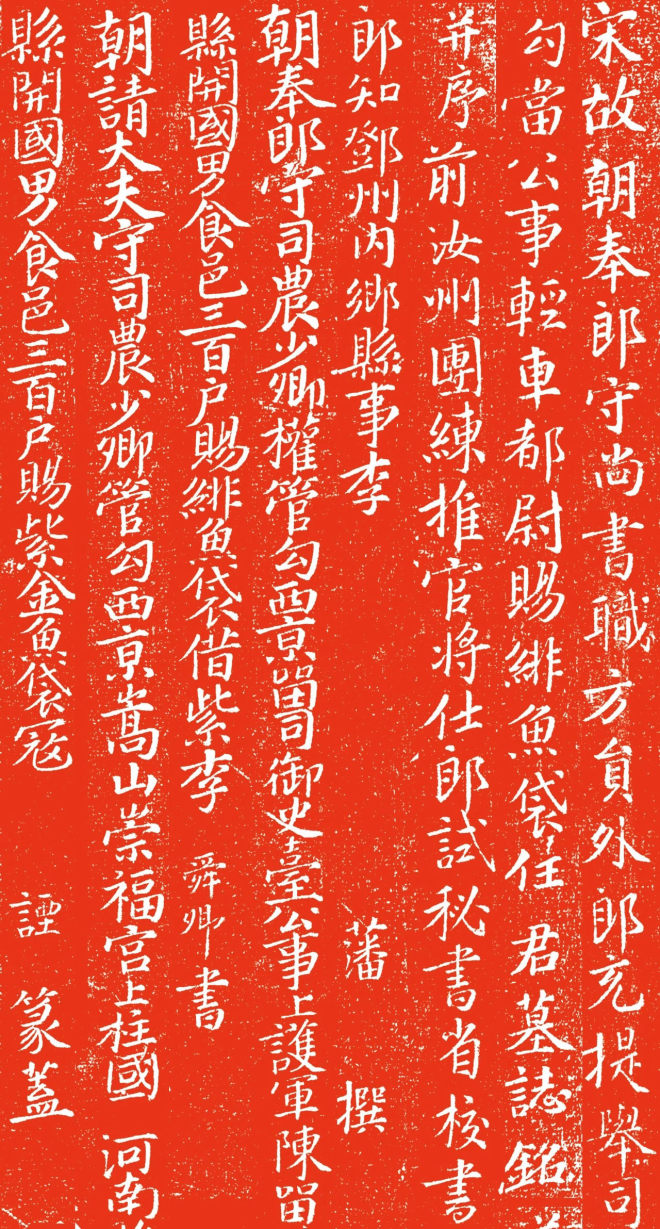 宋故朝奉郎守尚書職方員外郎充提舉司
勾當公事輕車都尉賜緋魚袋任君墓誌銘
并序前汝州團練推官將仕郎試秘書省校書
郎知鄧州內鄉縣事李藩撰
朝奉郎守司農少卿權管勾西京留司御史臺公事上護軍陳留
縣開國男食邑三百户賜緋魚袋借紫李舜卿書
朝請大夫守司農少卿管勾西京嵩山崇福宫上柱國河南
縣開國男食邑三百户賜紫金魚袋寇諲篆蓋